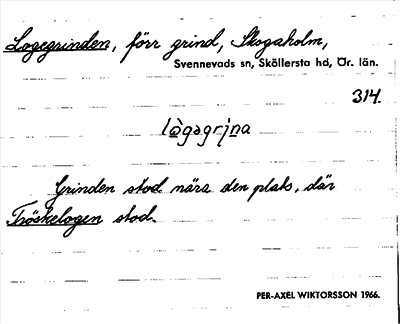 Logegrinden, förr grind, Skogaholm,
Svennevads sn, Sköllersta hd, Ör. län.
314.
lò̱gəgrịṉa
Grinden stod nära den plats, där
Tröskelogen stod.
PER-AXEL WIKTORSSON 1966.